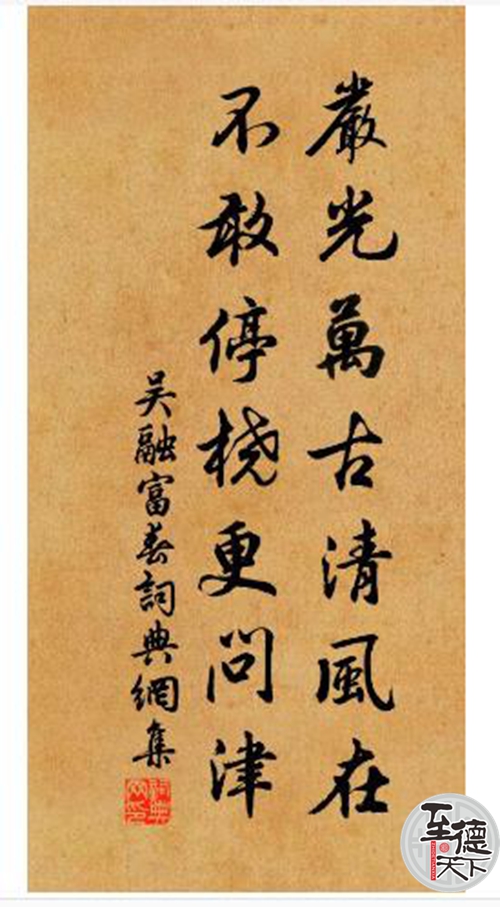 嚴光萬古清風在
不敢停桡更問津
吴融富春詞典網集
至德
天下